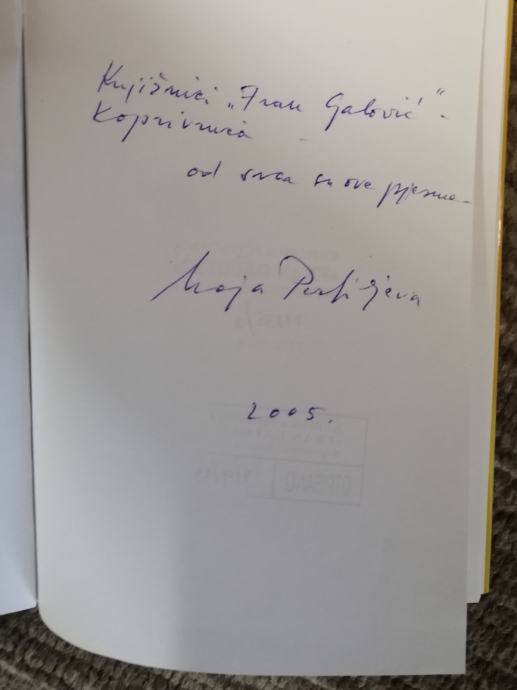 Knjižnici „Fran Galović" -
Koprivnica -
od srca su ove pjesme -
Maja Perfiljeva
2005.
OTPISANO